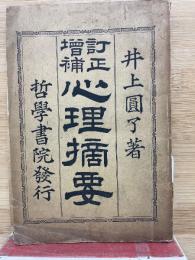 井上圓了著
訂正
增補
心理摘要
哲學書院發行